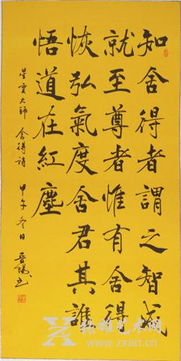 知舍得者謂之智成
就至尊者惟有舍得
恢弘氣度舍君其誰
悟道在紅塵
星雲大師 舍得詩
甲午冬日